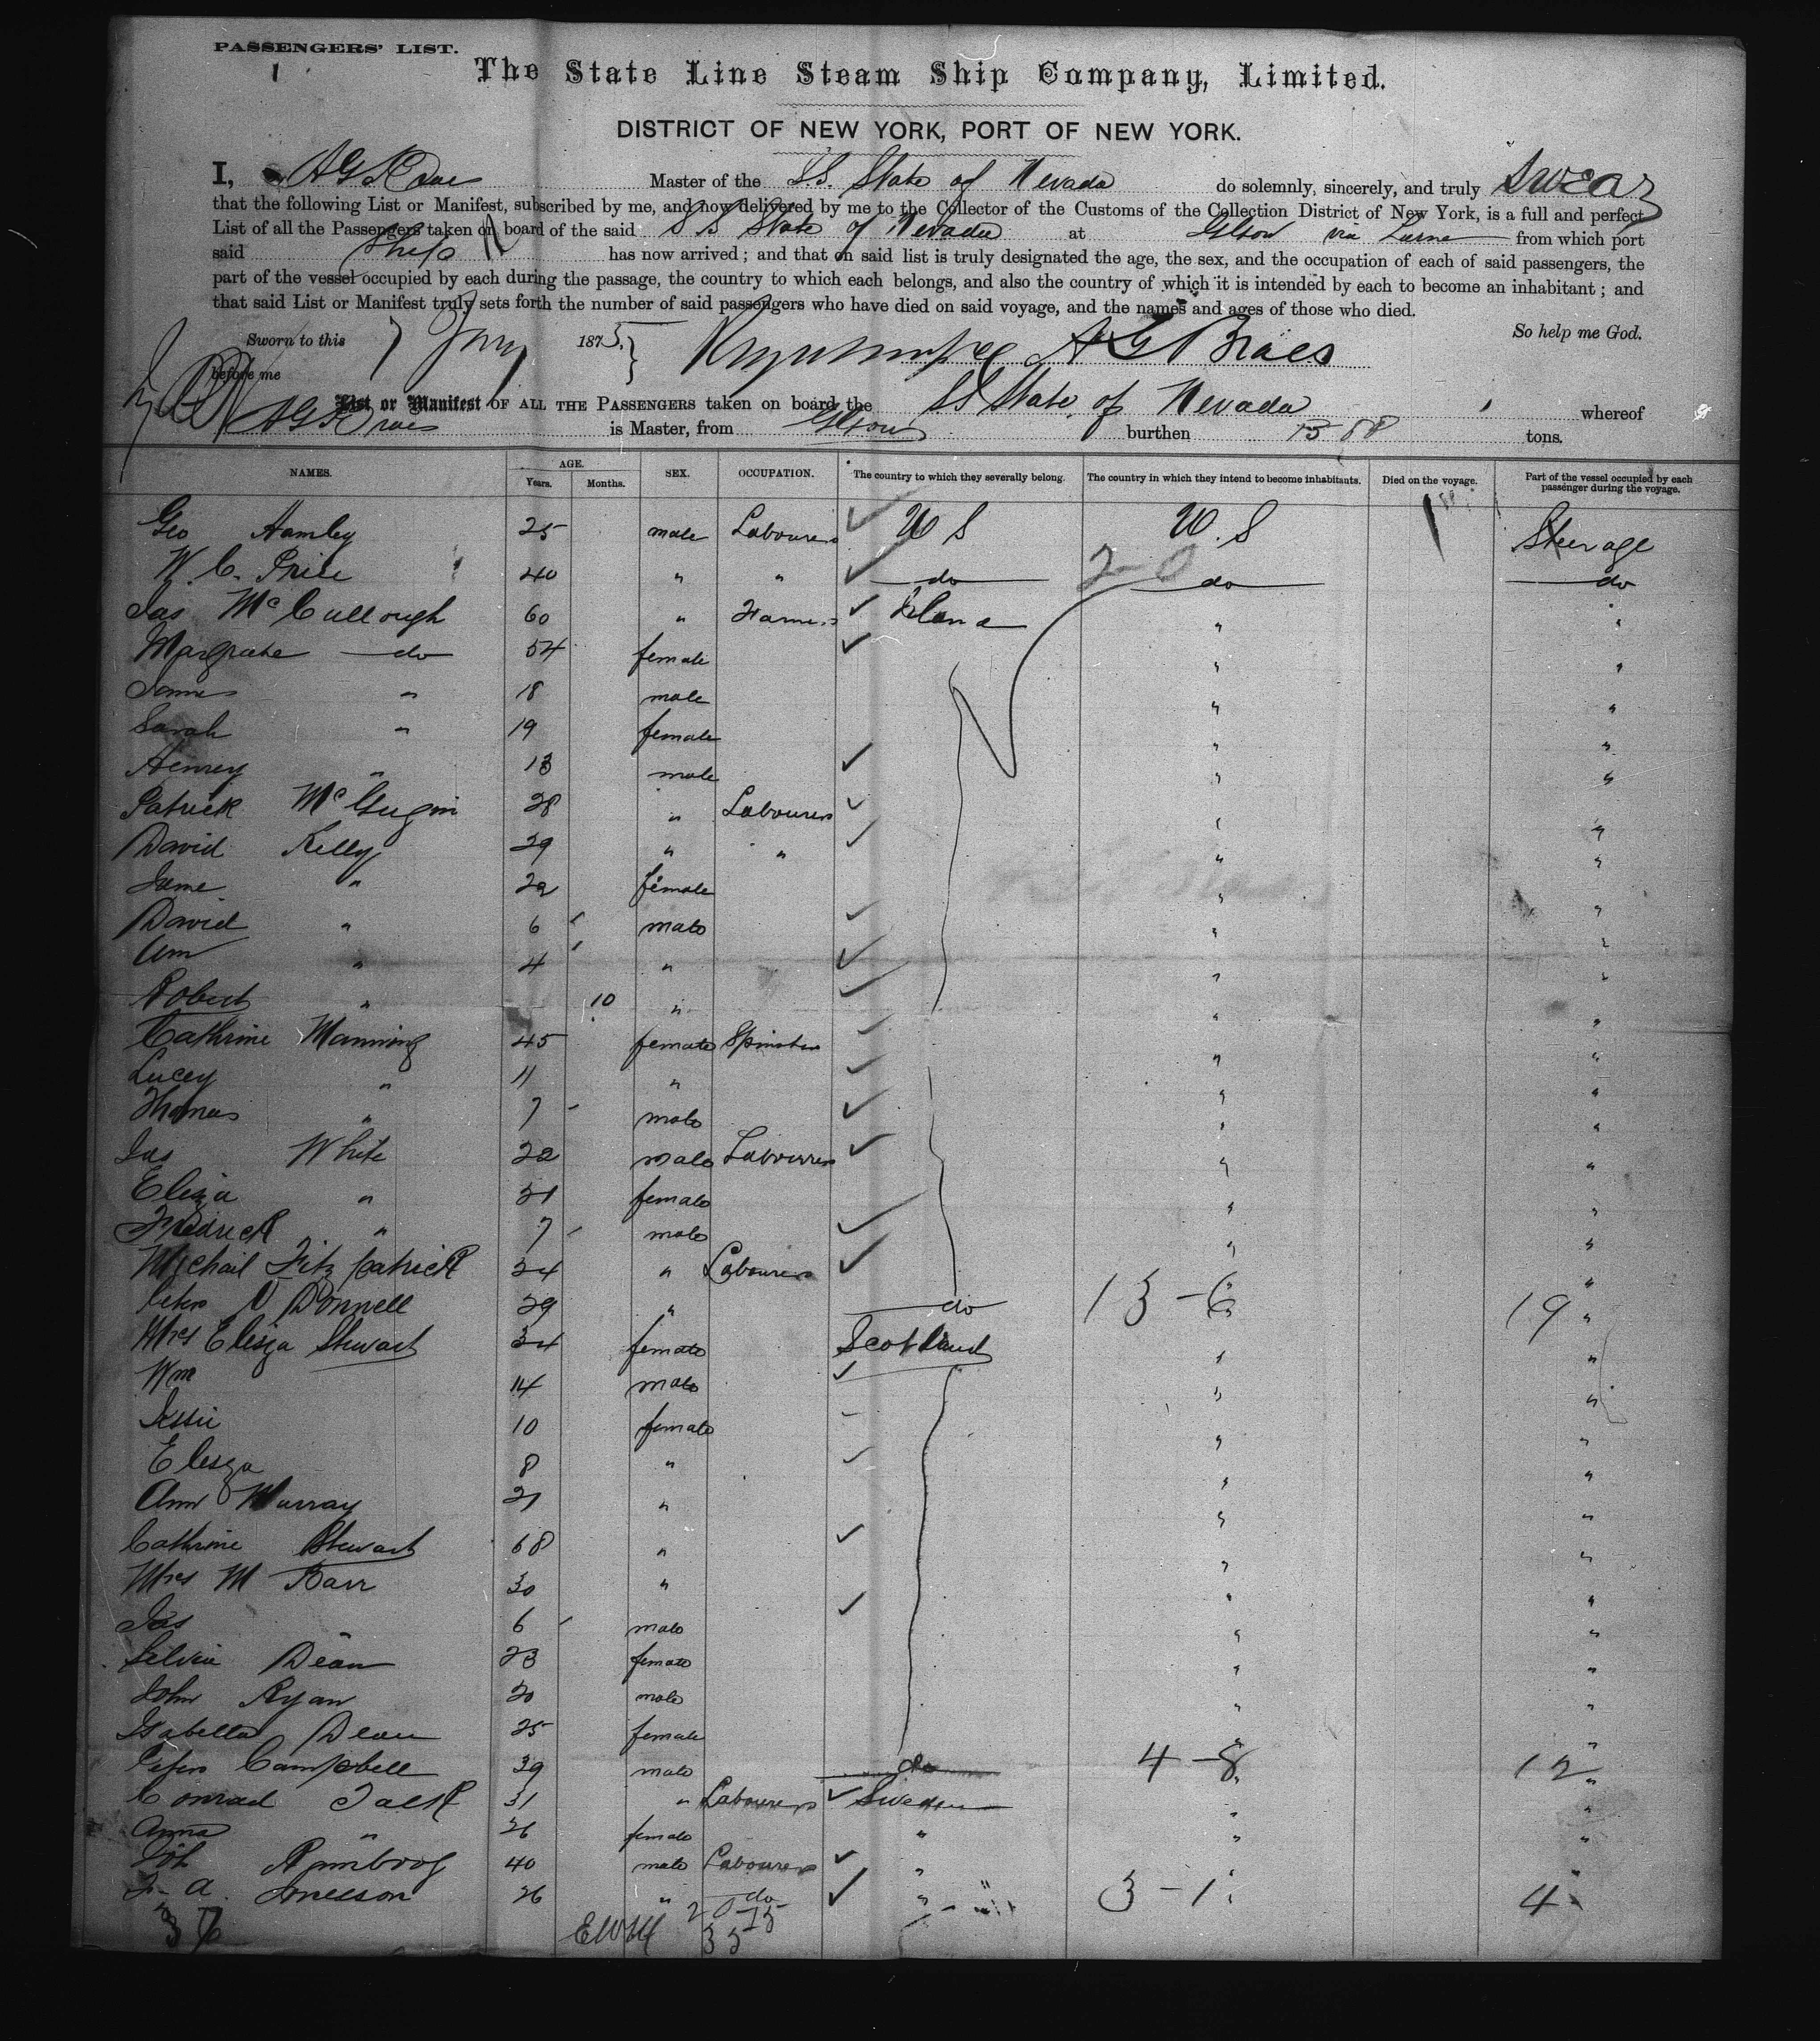 PASSENGERS' LIST.
1
The State Line Steam Ship Company, Limited.
DISTRICT OF NEW YORK, PORT OF NEW YORK.
I, A G Braes Master of the S.S. State of Nevada do solemnly, sincerely, and truly Swear
that the following List or Manifest, subscribed by me, and now delivered by me to the Collector of the Customs of the Collection District of New York, is a full and perfect
List of all the Passengers taken on board of the said S S State of Nevada at Glsow via Larne from which port
said Ship has now arrived; and that on said list is truly designated the age, the sex, and the occupation of each of said passengers, the
part of the vessel occupied by each during the passage, the country to which each belongs, and also the country of which it is intended by each to become an inhabitant; and
that said List or Manifest truly sets forth the number of said passengers who have died on said voyage, and the names and ages of those who died.
Sworn to this 7 Jany 1875. A G Braes So help me God.
before me
List or Manifest OF ALL THE PASSENGERS taken on board the SS State of Nevada whereof
A G Braes is Master, from Glsow burthen tons.
NAMES. AGE. Years. Months. SEX. OCCUPATION. The country to which they severally belong. The country in which they intend to become inhabitants. Died on the voyage. Part of the vessel occupied by each passenger during the voyage.
Geo Hamley 25 male Labourer U S U.S Steerage
W. C. Price 40 " " do 2-0 do do
Jas McCullough 60 " Farmer Ireland " "
Margrate do 54 female " "
James " 18 male " "
Sarah " 19 female " "
Henrey " 13 male " "
Patrick McGugin 28 " Labourer " "
David Kelly 29 " " " "
Jame " 22 female " "
David " 6 male " "
Ann " 4 " " "
Robert " 10 " " "
Cathrine Manning 45 female Spinster " "
Lucey " 11 " " "
Thomas " 7 male " "
Jas White 22 male Labourer " "
Eliza " 21 female " "
Fredrick " 7 male " "
Michail Fitz patrick 24 " Labourer " "
Peter O Donnell 29 " do 13-6 " 19 "
Mrs Elisza Stewart 34 female Scotland " "
Wm 14 male " "
Jessie 10 female " "
Elisza 8 " " "
Ann Murray 21 " " "
Cathrine Stewart 68 " " "
Mrs M Barr 30 " " "
Jas 6 male " "
Silvia Dean 23 female " "
John Ryan 20 male " "
Isabella Dean 25 female " "
Peter Campbell 39 male do 4-8 " 12 "
Conrad Falk 31 " Labourer Sweden " "
Anna " 26 female " " "
Joh 40 male Labourer " " "
J. A. 26 " do " 3-1 4
36
20 15
35